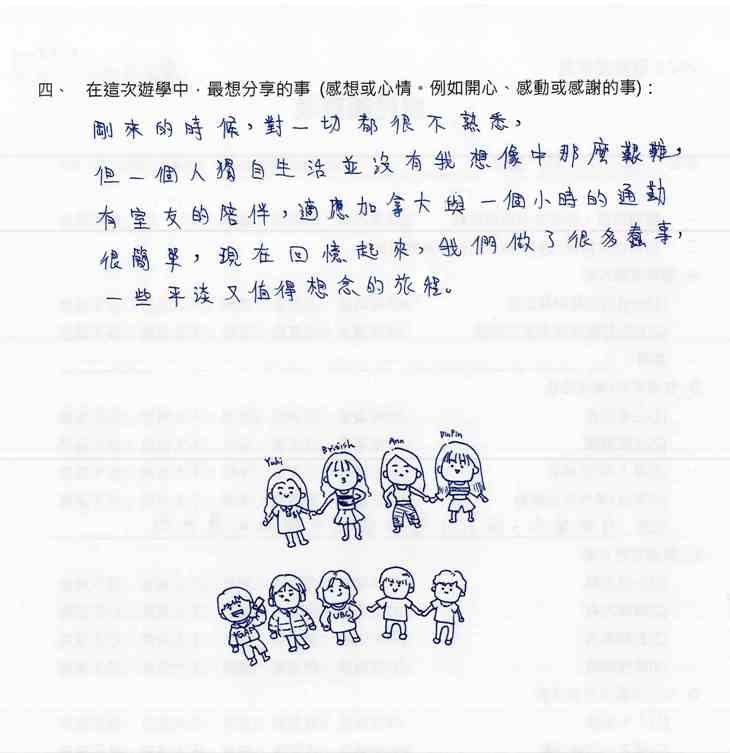 四、 在這次遊學中，最想分享的事 (感想或心情。例如開心、感動或感謝的事)：
剛來的時候，對一切都很不熟悉，
但一個人獨自生活並沒有我想像中那麼艱難，
有室友的陪伴，適應加拿大與一個小時的通勤
很簡單，現在回憶起來，我們做了很多蠢事，
一些平淡又值得想念的旅程。
Yuki
Ann
PinPin
UBC